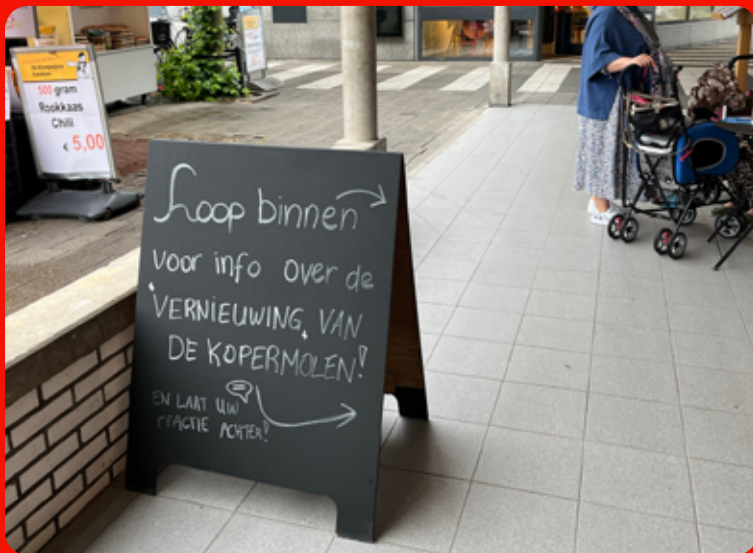 500 gram
Rookkaas
Chili
€ 5,00
Loop binnen
voor info over de
VERNIEUWING VAN
DE KOPERMOLEN!
EN LAAT UW
REACTIE ACHTER!